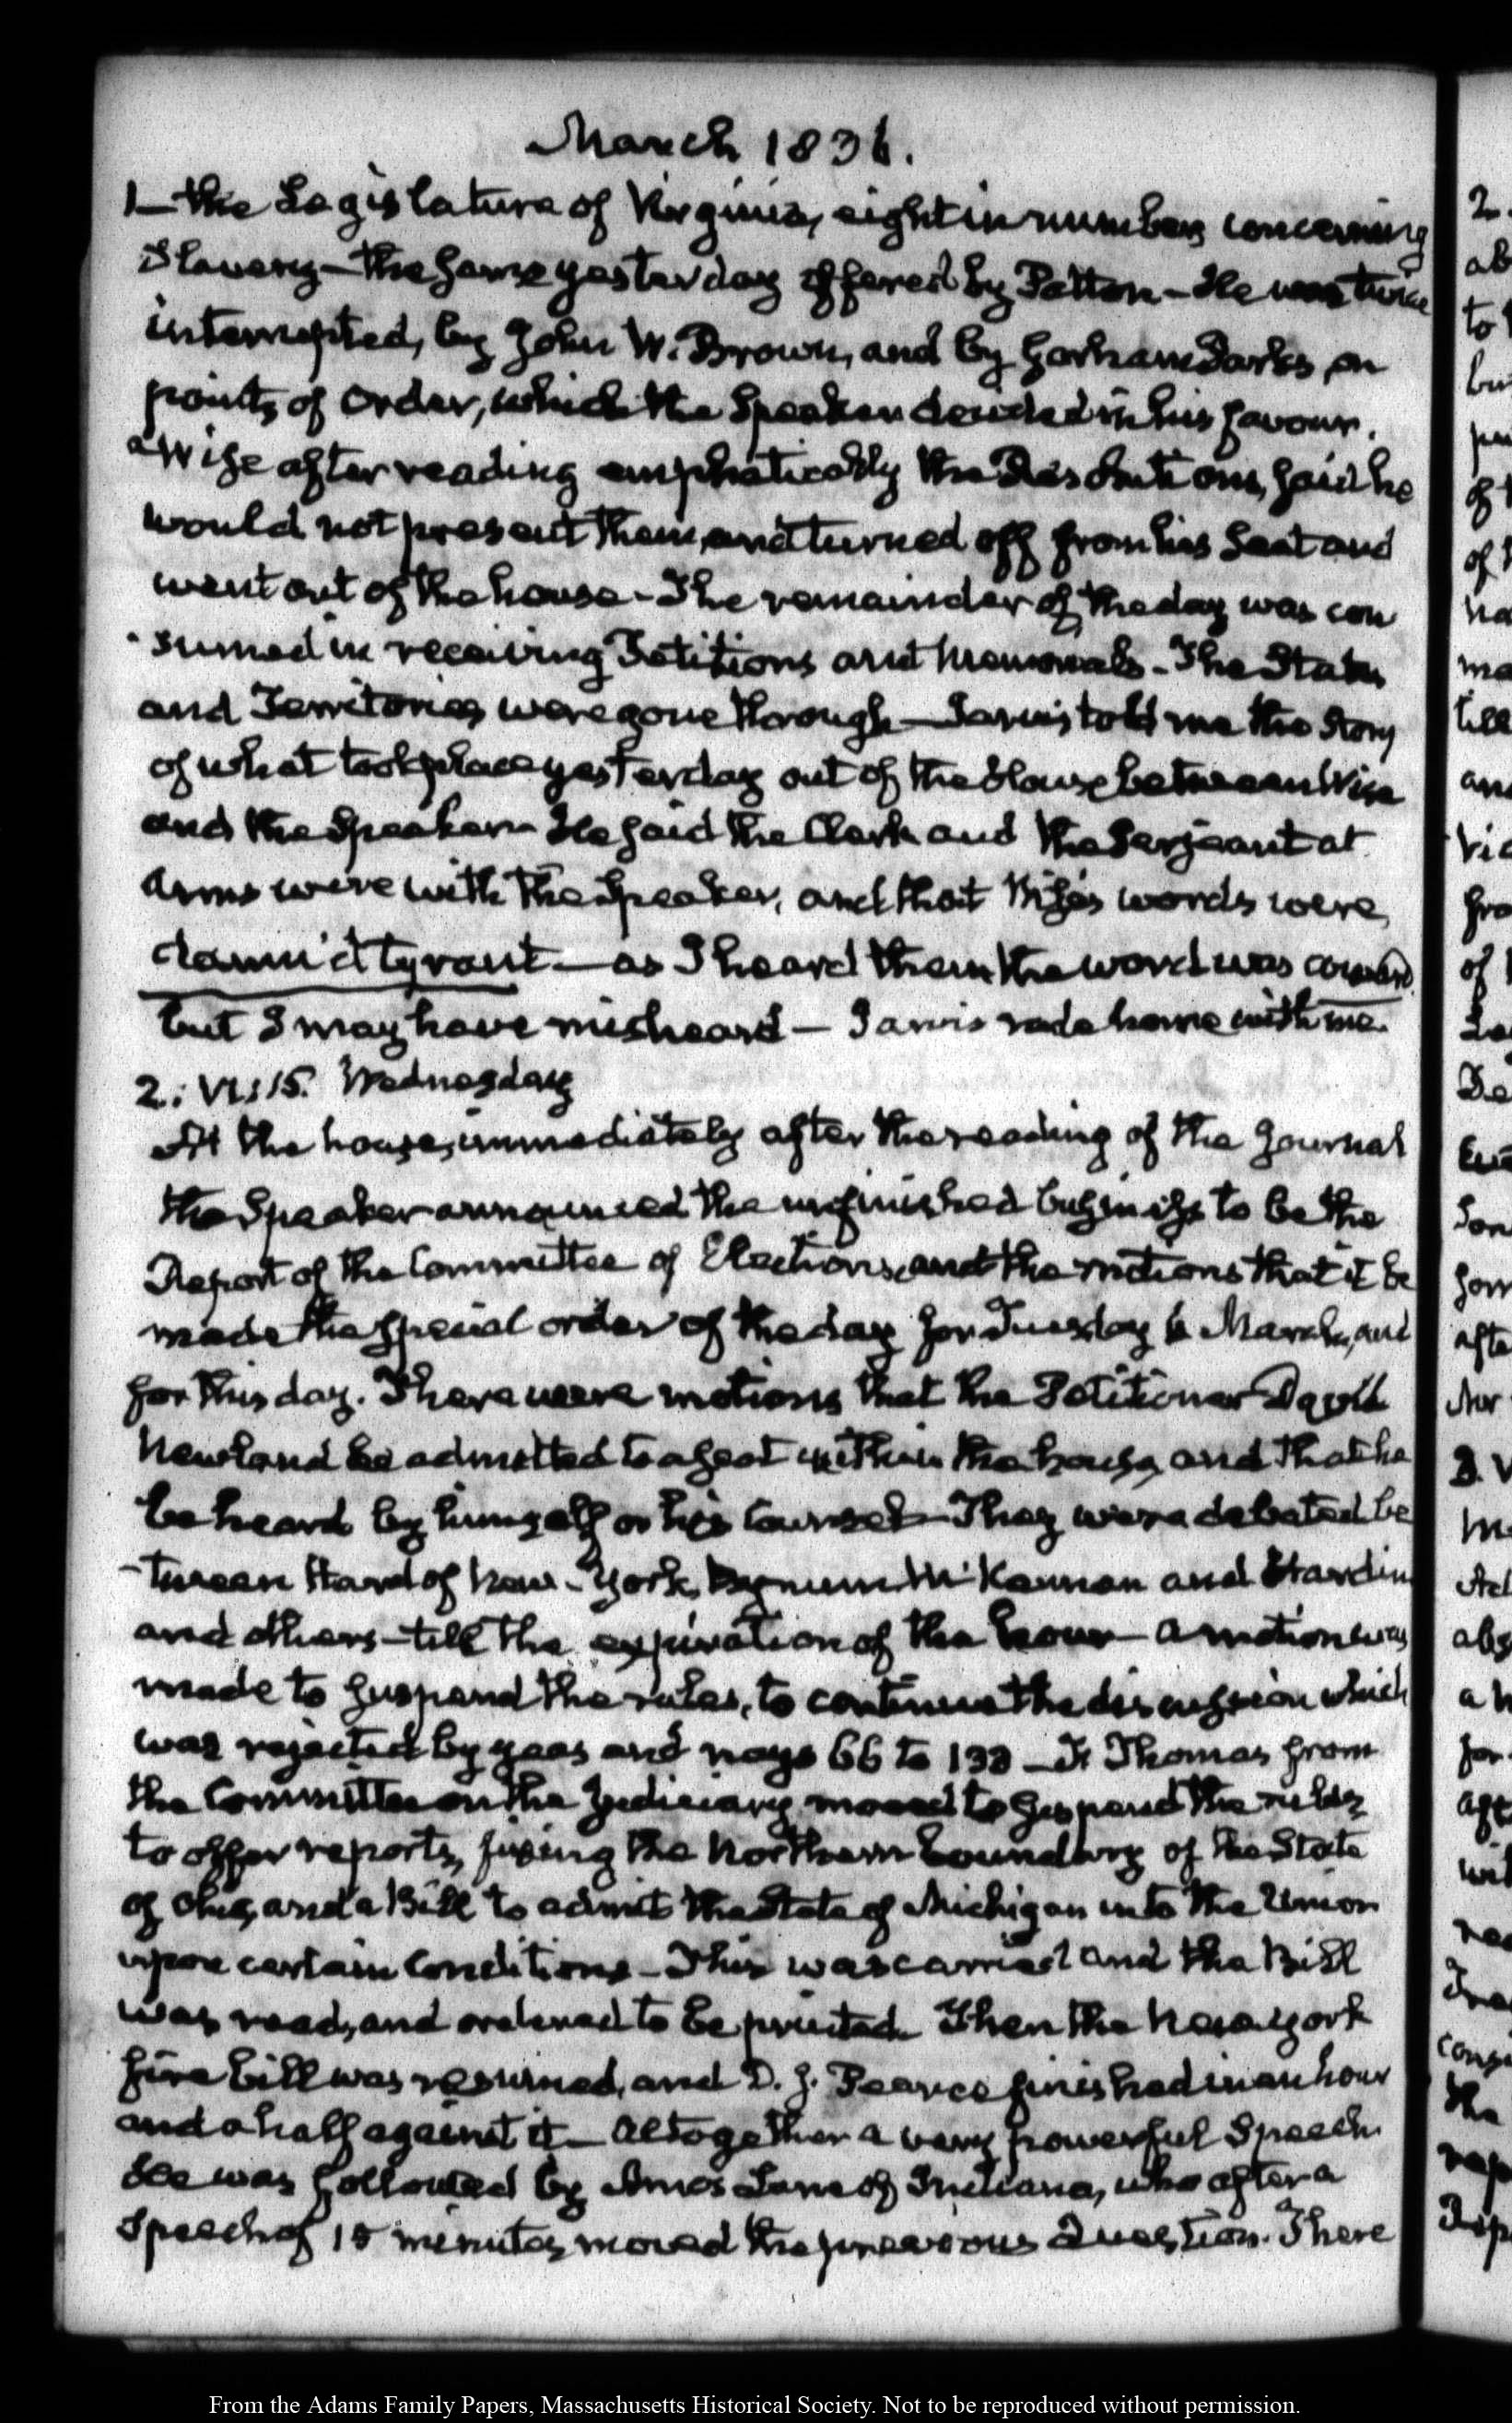 March 1836.
1— the Legislature of Virginia, eight in number, concerning
Slavery — the same yesterday offered by Patton — He was twice
interrupted, by John W. Brown, and by Gorham Parks, on
points of order, which the Speaker decided in his favour.
Wise after reading emphatically the Resolutions, said he
would not present them, and turned off from his Seat and
went out of the house — The remainder of the day was con
sumed in receiving Petitions and Memorials — The States
and Territories were gone through — Jarvis told me the Story
of what took place yesterday out of the House between Wise
and the Speaker — He said the Clerk and the Serjeant at
Arms were with the Speaker, and that Wise's words were,
damn'd tyrant — as I heard them the word was coward
but I may have misheard — Jarvis rode home with me.
2. VI:15. Wednesday
At the house, immediately after the reading of the Journal
the Speaker announced the unfinished business to be the
Report of the Committee of Elections, and the motions that it be
made the special order of the day for Tuesday March, and
for this day. There were motions that the Petitioner David
Newland be admitted to a seat within the house, and that he
be heard by himself or his Counsel — They were debated be
-tween Hard of New-York, Bynum McKennan and Hardin
and others — till the expiration of the hour — a motion was
made to suspend the rules, to continue the discussion which
was rejected by yeas and nays 66 to 133 — F. Thomas from
the Committee on the Judiciary moved to suspend the rules
to offer reports, fixing the Northern boundary of the State
of Ohio, and a Bill to admit the State of Michigan into the Union
upon certain conditions — This was carried and the Bill
was read, and ordered to be printed. Then the New-York
fire bill was resumed, and D. J. Pearce finished in an hour
and a half against it — altogether a very powerful Speech.
He was followed by Amos Lane of Indiana, who after a
Speech of 15 minutes moved the previous Question. There
From the Adams Family Papers, Massachusetts Historical Society. Not to be reproduced without permission.